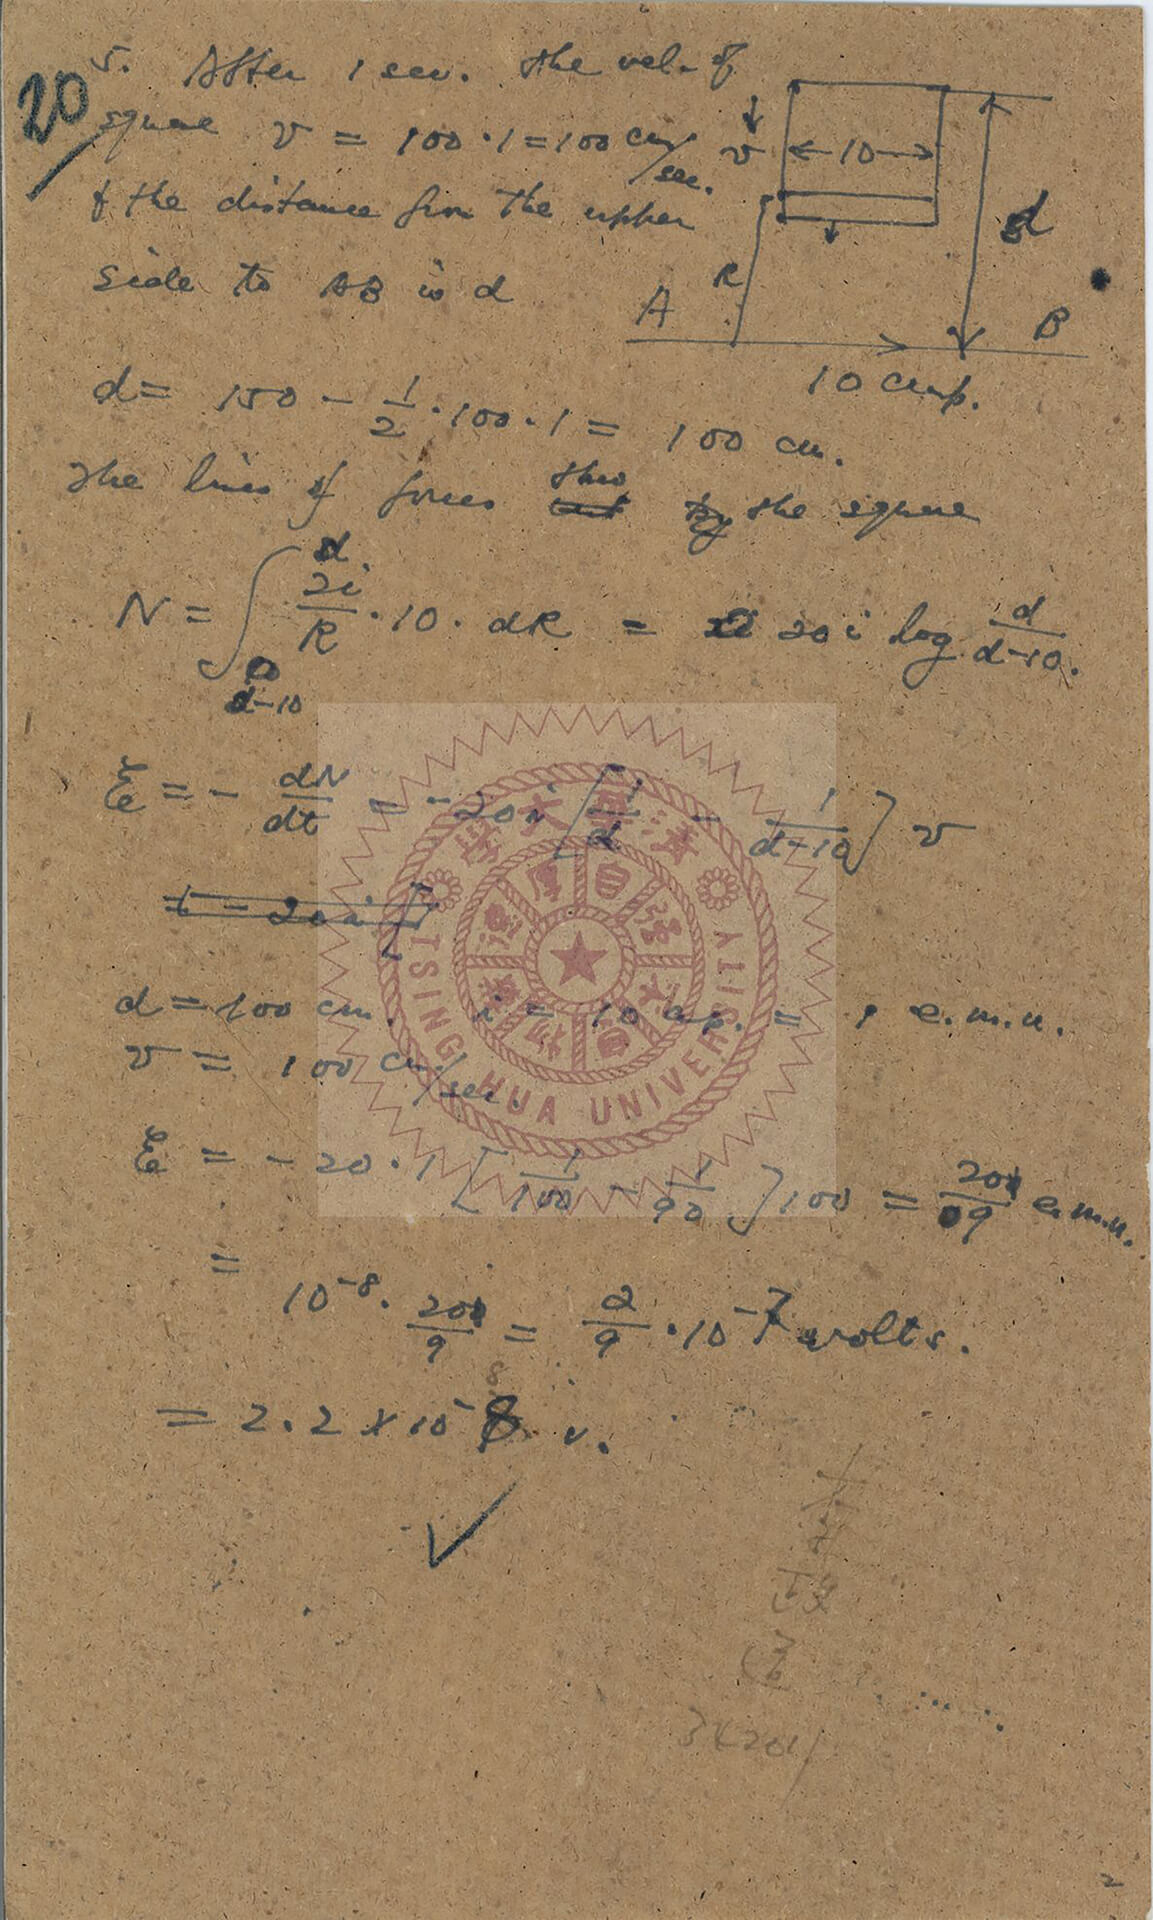 20
5. After 1 sec. the vel. of
square v = 100 · 1 = 100 cm/sec.
& the distance from the upper
side to AB is d
v
10
d
R
A
B
10 amp.
d = 150 - 1/2 · 100 · 1 = 100 cm.
The lines of forces thro the square
N = ∫ d d-10 2i/R · 10 · dR = 20 i log d/d-10.
Ɛ = - dN/dt = - 20 i [1/d - 1/d-10] v
= - 20 i [
d = 100 cm. i = 10 amp. = 1 e.m.u.
v = 100 cm/sec.
Ɛ = - 20 · 1 [1/100 - 1/90] 100 = 20/9 e.m.u.
=
10⁻⁸ · 20/9 = 2/9 · 10⁻⁷ volts.
8
= 2.2 × 10⁻⁸ v.
✓
大學
清華
自强
厚
TSING HUA UNIVERSITY
2